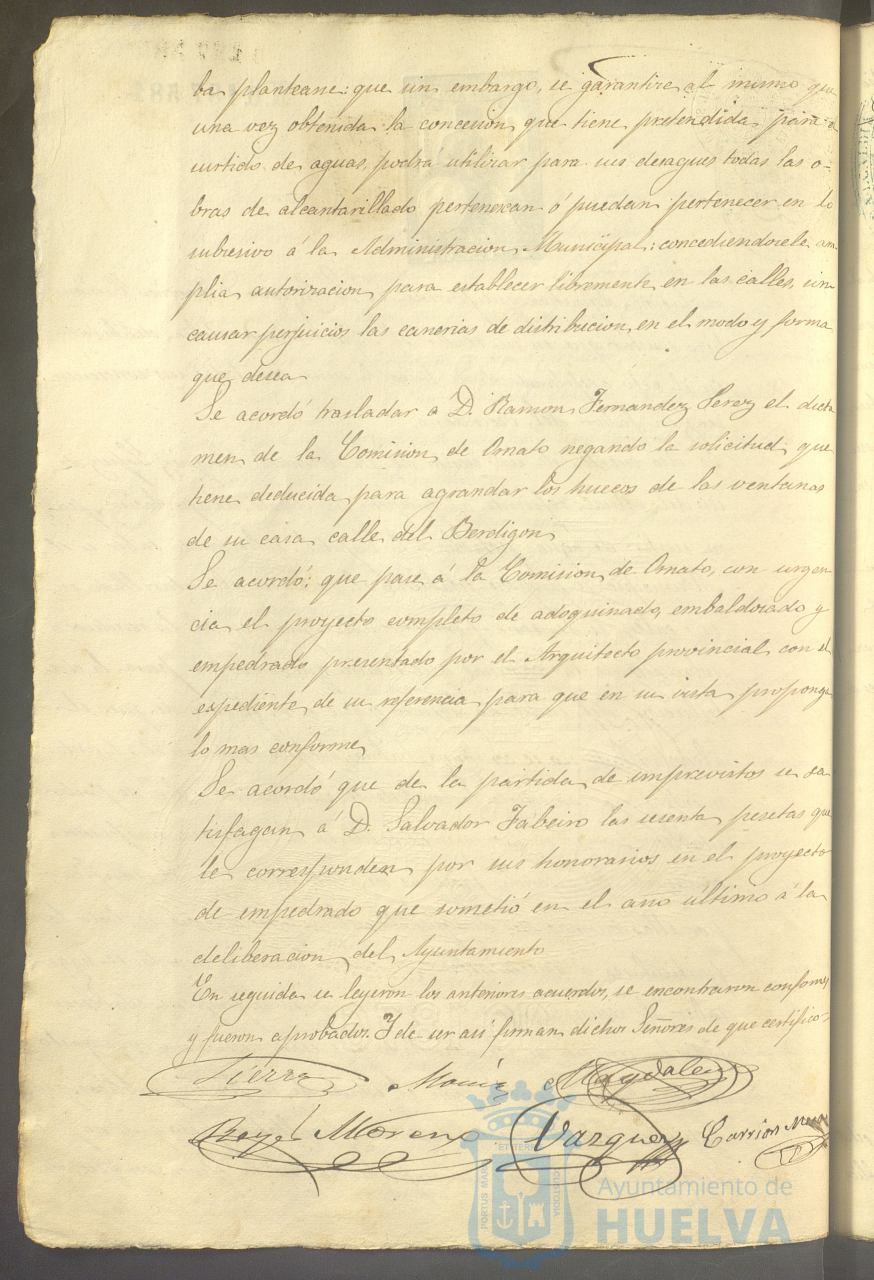 ba plantearse: que sin embargo, se garantire al mismo que
una vez obtenida la concesion que tiene pretendida para
surtido de aguas, podrá utilizar para sus desagues todas las o-
bras de alcantarillado pertenezcan ó puedan pertenecer en lo
subcesivo á la Administracion Municipal: concediendosele am
plia autorizacion para establecer libremente en las calles, sin
causar perjuicios las canerias de distribucion en el modo y forma
que desea
Se acordó trasladar a D. Ramon Fernandez Perez el dicta
men de la Comision de Ornato negando la solicitud que
tiene deducida para agrandar los huecos de las ventanas
de su casa calle del Berdigon
Se acordó: que pase á la Comision de Ornato, con urgen
cia el proyecto completo de adoquinado, embaldosado y
empedrado presentado por el Arquitecto provincial con el
expediente de su referencia para que en su vista proponga
lo mas conforme
Se acordó que de la partida de imprevistos se sa
tisfagan á D. Salvador Fabeiro las sesenta pesetas que
le corresponden por sus honorarios en el proyecto
de empedrado que sometió en el año último á la
deliberacion del Ayuntamiento
En seguida se leyeron los anteriores acuerdos, se encontraron conformes
y fueron aprobados. Y de ser asi firman dichos Señores de que certifico-
Sierra Macias Magdalena
Rey Moreno Vazquez Carrion
PORTUS MARIS ET TERRE CUSTODIA
Ayuntamiento de
HUELVA